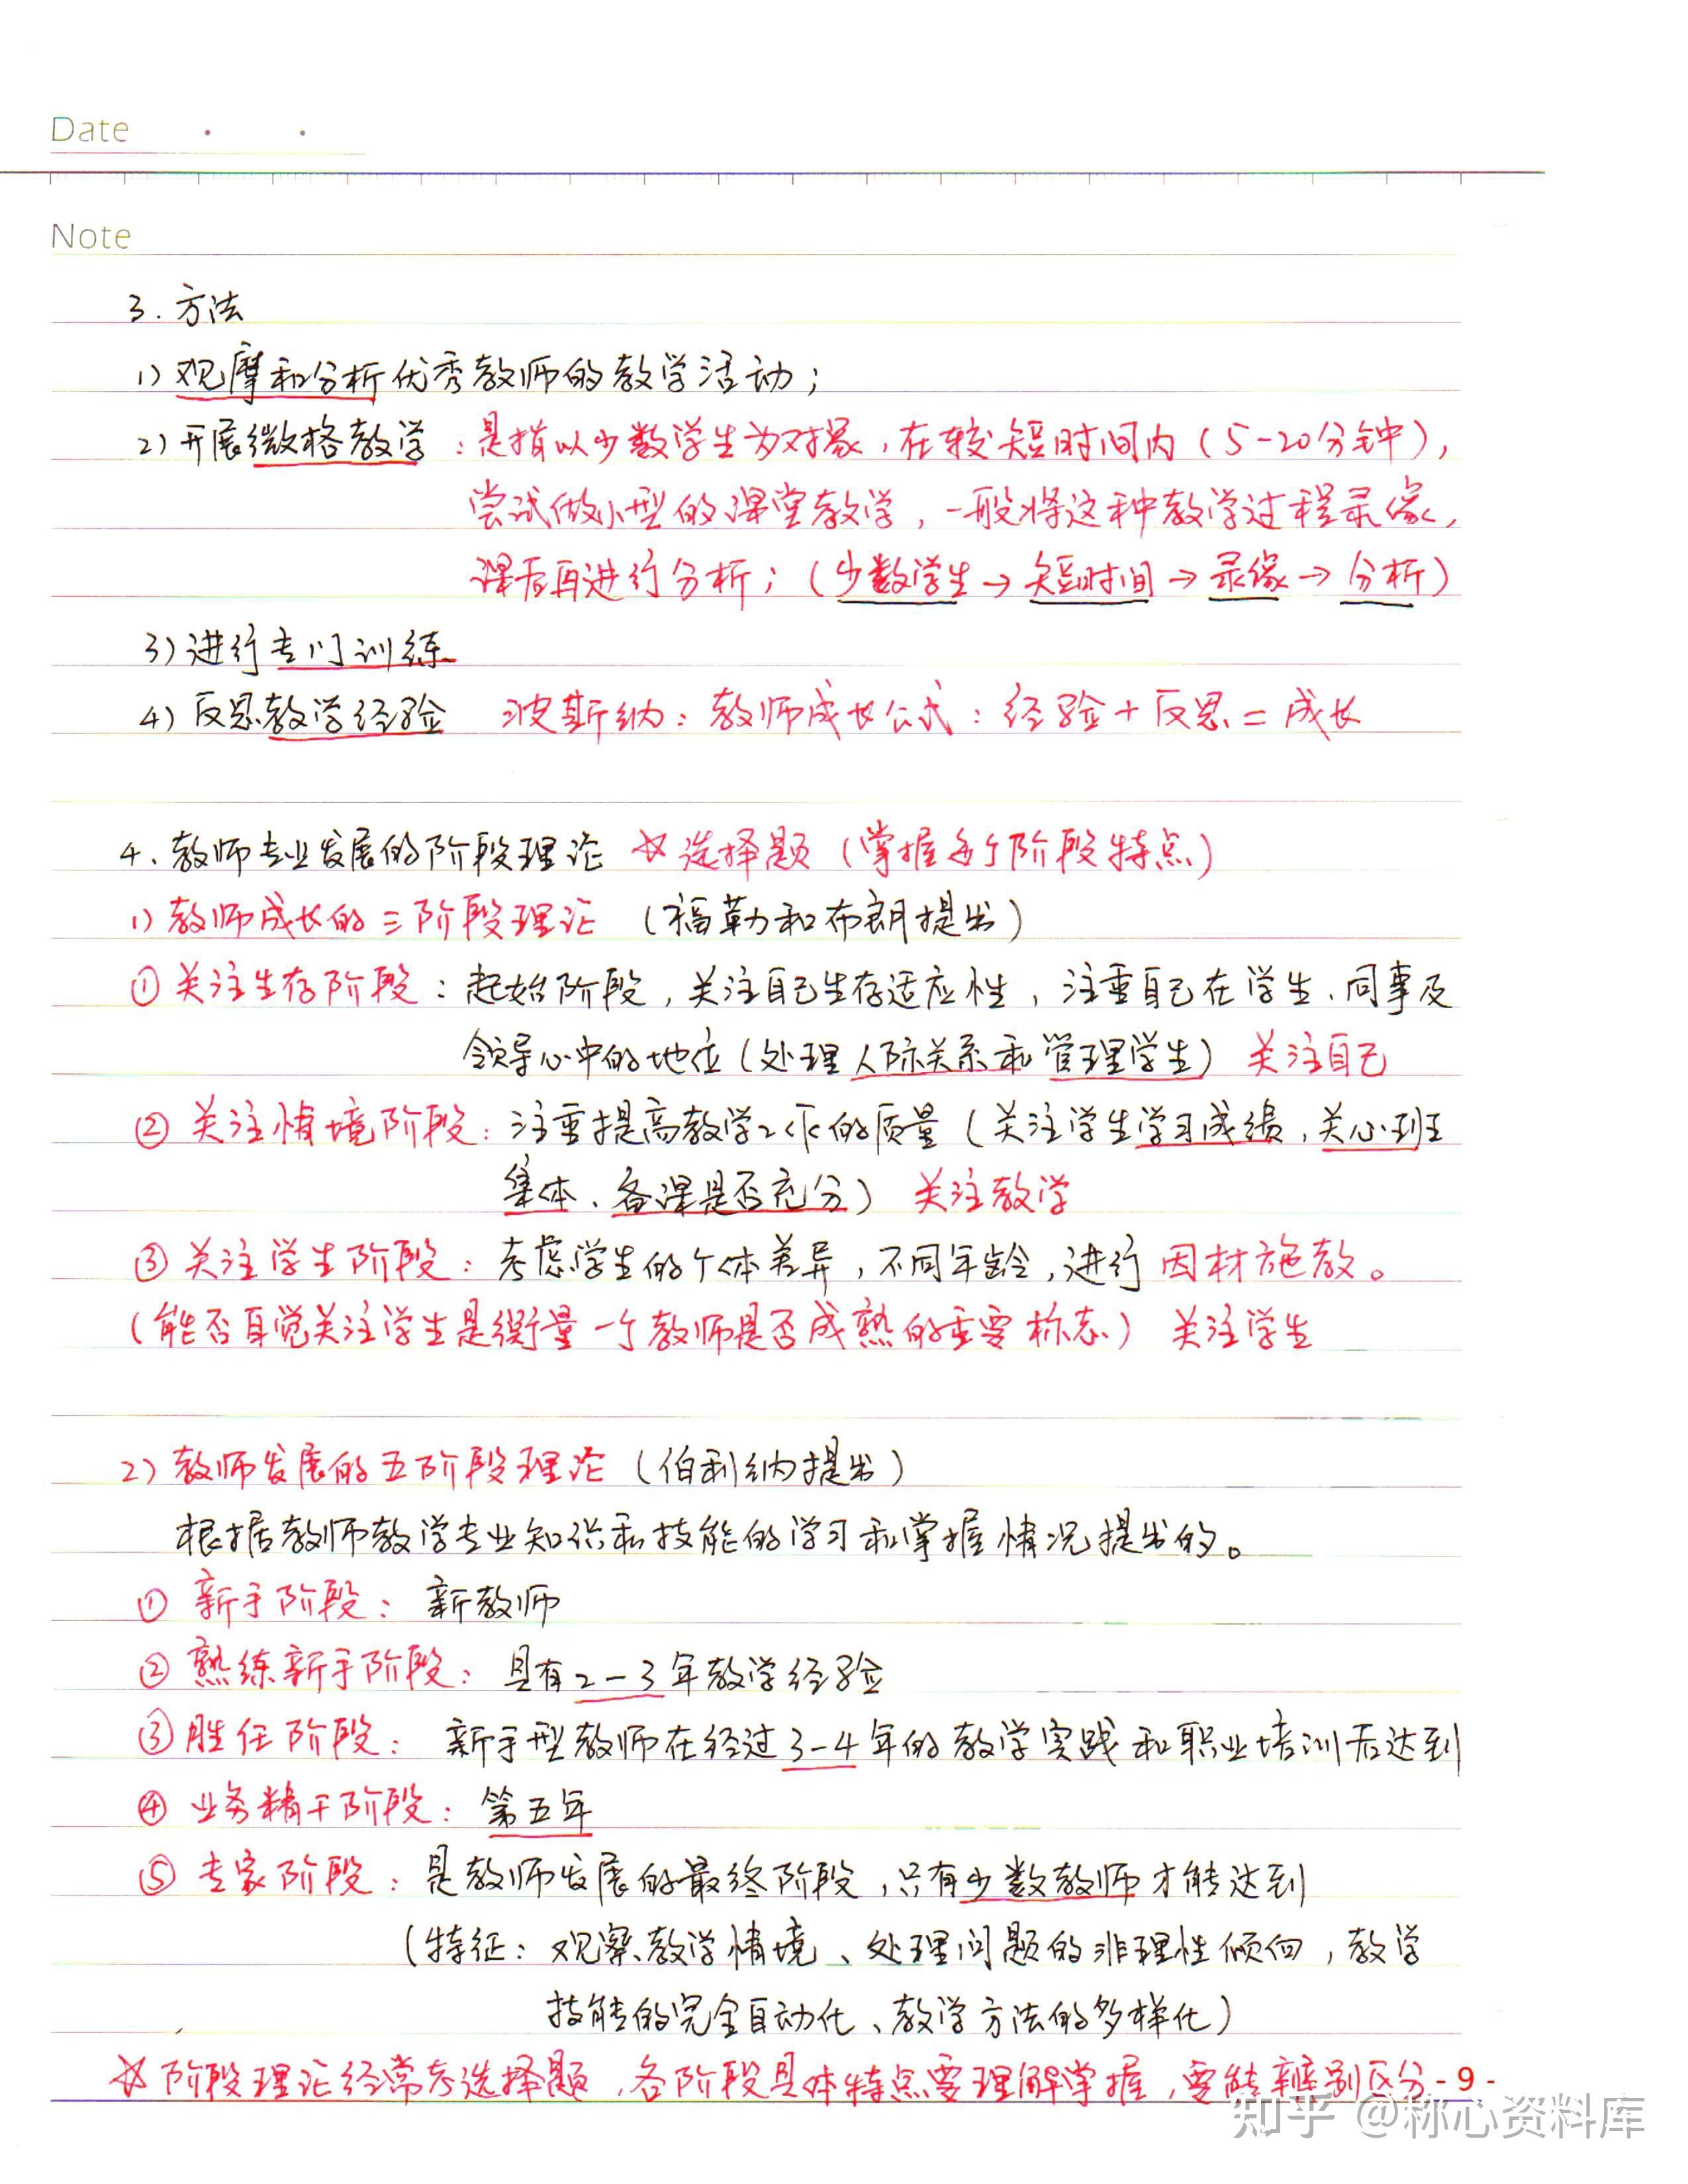 Date
Note
3. 方法
1) 观摩和分析优秀教师的教学活动;
2) 开展微格教学: 是指以少数学生为对象, 在较短时间内 (5-20分钟),
尝试做小型的课堂教学, 一般将这种教学过程录像,
课后再进行分析; (少数学生→短时间→录像→分析)
3) 进行专门训练
4) 反思教学经验 波斯纳: 教师成长公式: 经验+反思=成长
4. 教师专业发展的阶段理论 ☆选择题 (掌握各个阶段特点)
1) 教师成长的三阶段理论 (福勒和布朗提出)
① 关注生存阶段: 起始阶段, 关注自己生存适应性, 注重自己在学生、同事及
领导心中的地位 (处理人际关系和管理学生) 关注自己
② 关注情境阶段: 注重提高教学工作的质量 (关注学生学习成绩, 关心班
集体、备课是否充分) 关注教学
③ 关注学生阶段: 考虑学生的个体差异, 不同年龄, 进行因材施教。
(能否自觉关注学生是衡量一个教师是否成熟的重要标志) 关注学生
2) 教师发展的五阶段理论 (伯利纳提出)
根据教师教学专业知识和技能的学习和掌握情况提出的。
① 新手阶段: 新教师
② 熟练新手阶段: 具有2-3年教学经验
③ 胜任阶段: 新手型教师在经过3-4年的教学实践和职业培训后达到
④ 业务精干阶段: 第五年
⑤ 专家阶段: 是教师发展的最终阶段, 只有少数教师才能达到
(特征: 观察教学情境、处理问题的非理性倾向, 教学
技能的完全自动化、教学方法的多样化)
☆阶段理论经常考选择题, 各阶段具体特点要理解掌握, 要能辨别区分 - 9 -
知乎 @称心资料库